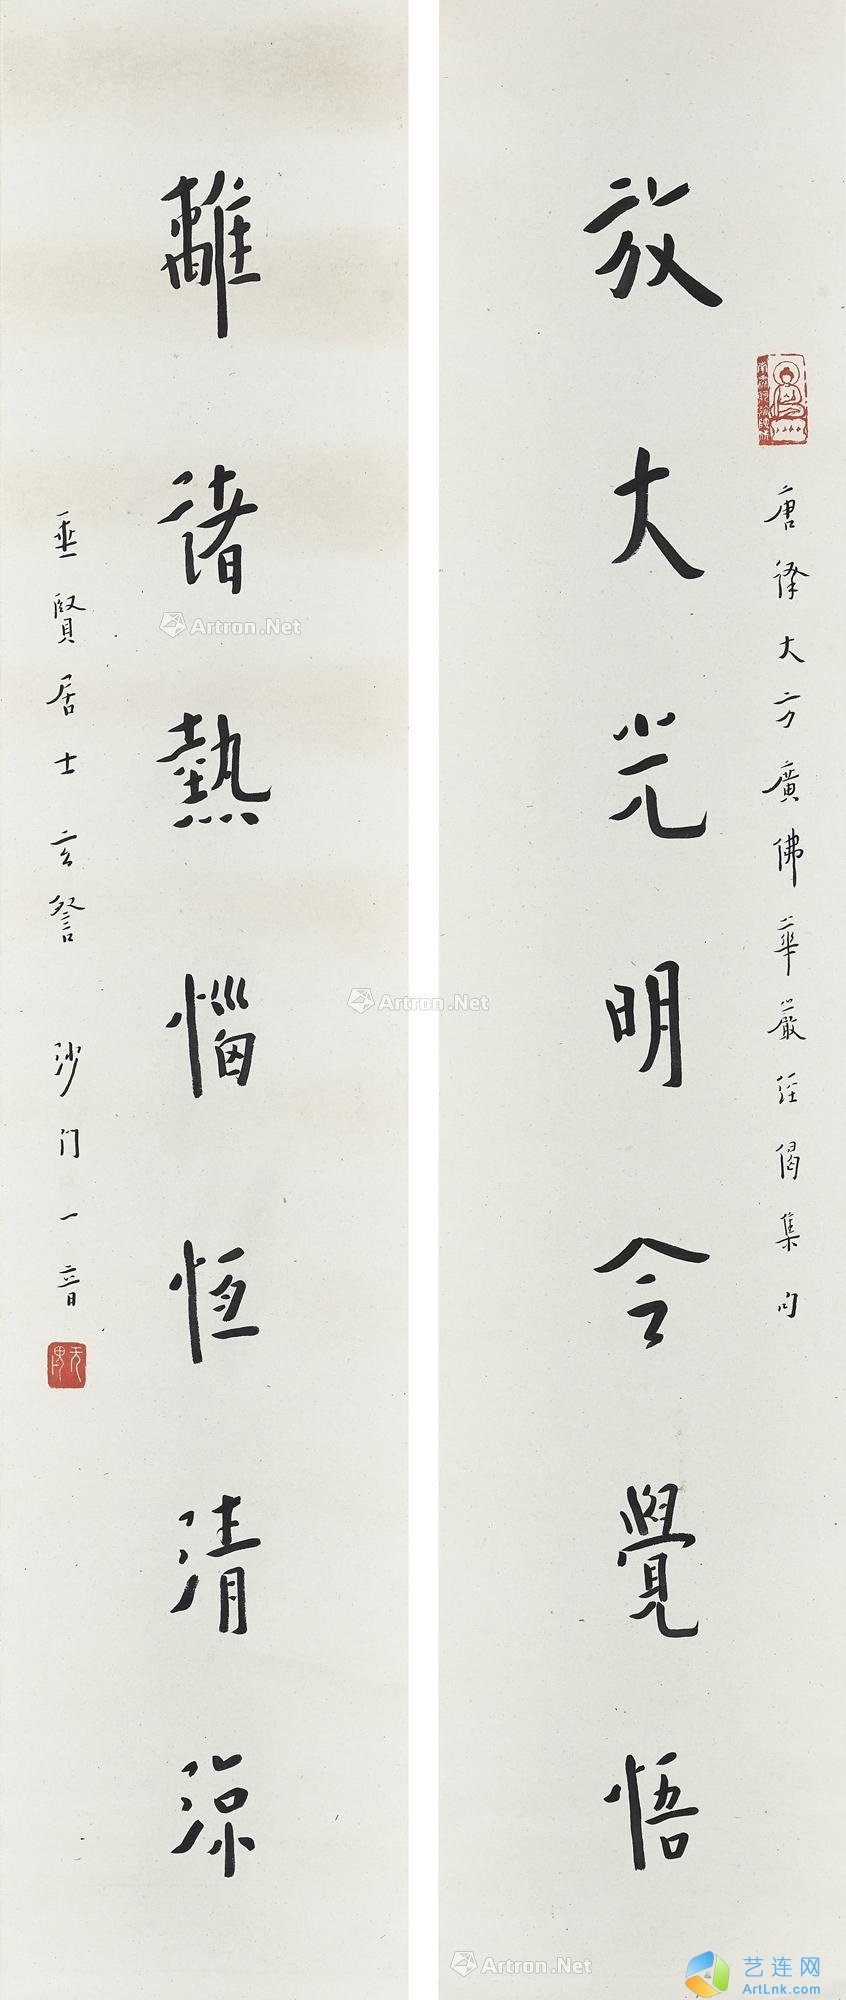 唐譯大方廣佛華嚴經偈集句
放大光明令覺悟
離諸熱惱恆清涼
賢居士玄詧 沙门一音
Artron.Net
Artron.Net
Artron.Net
艺连网
ArtLnk.com